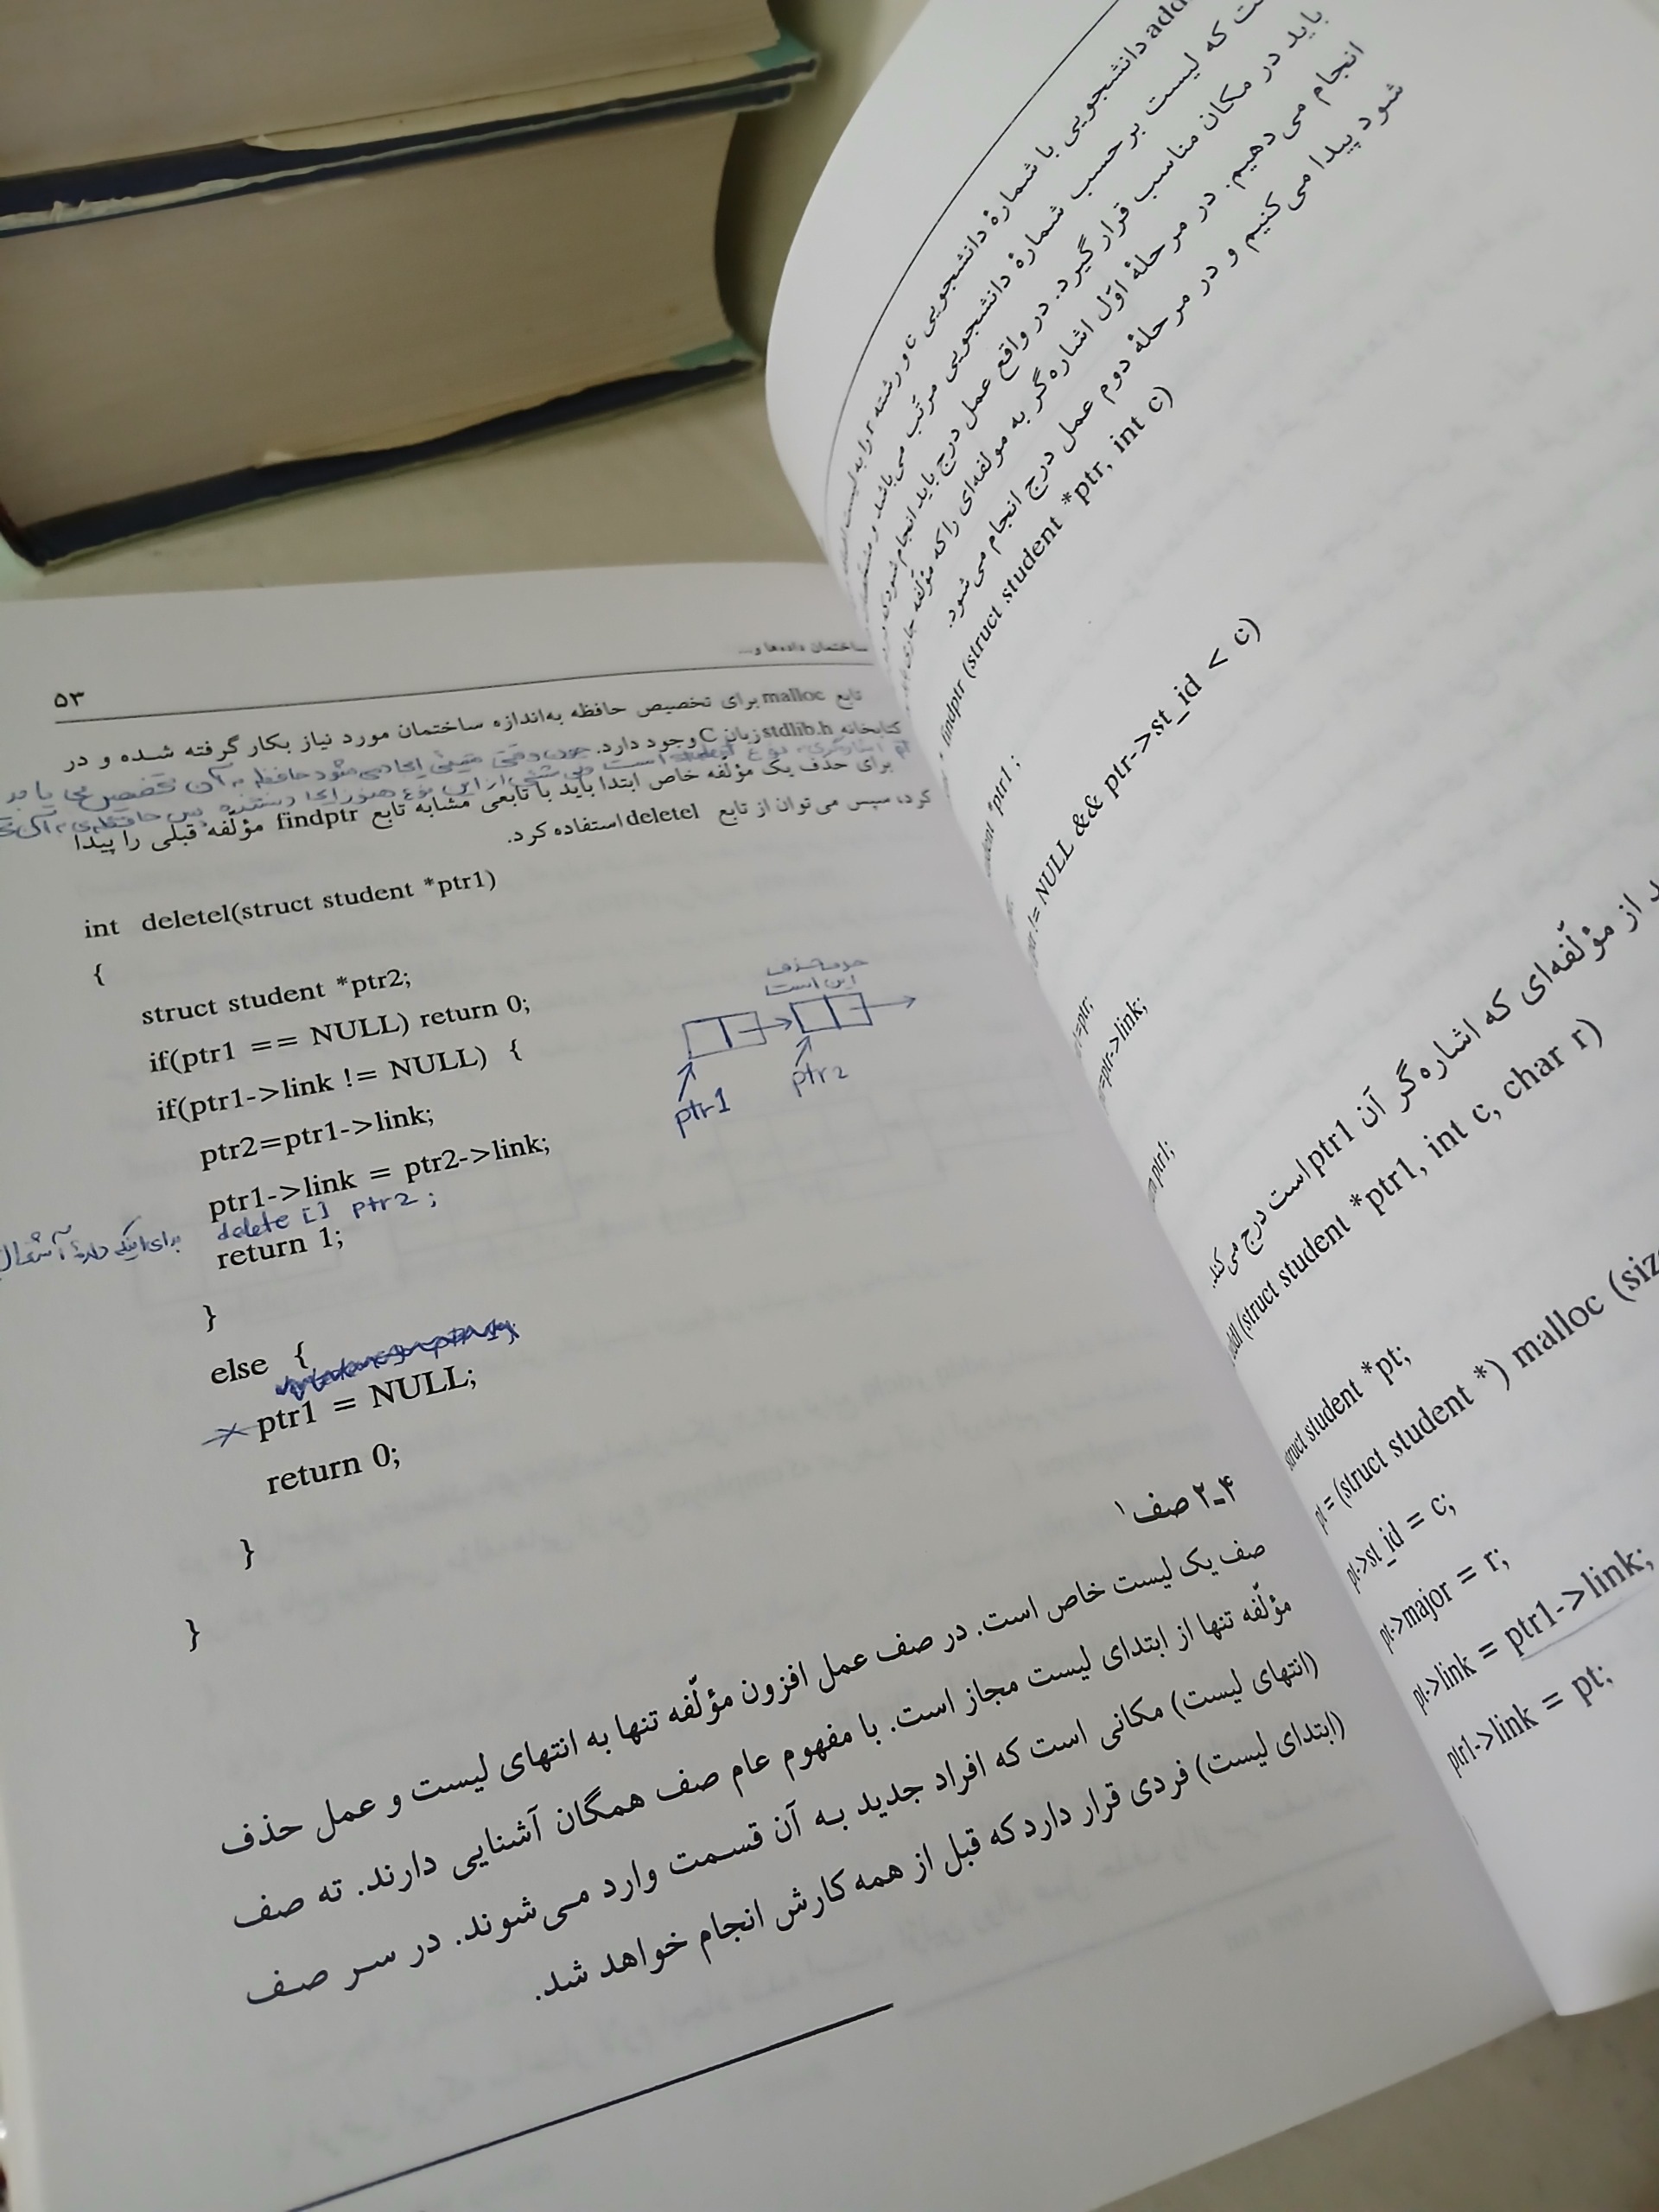 ساختمان داده‌ها و...
۵۳
تابع malloc برای تخصیص حافظه به‌اندازه ساختمان مورد نیاز بکار گرفته شده و در
کتابخانه stdlib.h زبان C وجود دارد.
برای حذف یک مؤلّفه خاص ابتدا باید با تابعی مشابه تابع findptr مؤلّفه قبلی را پیدا
کرد، سپس می‌توان از تابع deletel استفاده کرد.
int deletel(struct student *ptr1)
{
struct student *ptr2;
if(ptr1 == NULL) return 0;
if(ptr1->link != NULL) {
ptr2=ptr1->link;
ptr1->link = ptr2->link;
delete [] ptr2 ;
return 1;
}
else {
ptr1 = NULL;
return 0;
}
}
این است
ptr1
ptr2
۲ـ۴ صف۱
صف یک لیست خاص است. در صف عمل افزون مؤلّفه تنها به انتهای لیست و عمل حذف
مؤلّفه تنها از ابتدای لیست مجاز است. با مفهوم عام صف همگان آشنایی دارند. ته صف
(انتهای لیست) مکانی است که افراد جدید به آن قسمت وارد می‌شوند. در سر صف
(ابتدای لیست) فردی قرار دارد که قبل از همه کارش انجام خواهد شد.
دانشجویی با شمارهٔ دانشجویی c و رشته r را به لیست
که لیست برحسب شمارهٔ دانشجویی مرتّب می‌باشد و
باید در مکان مناسب قرار گیرد. در واقع عمل درج باید انجام شود که
انجام می دهیم. در مرحلهٔ اوّل اشاره‌گر به مولفه‌ای را که مؤلّفه جاری
شود پیدا می‌کنیم و در مرحلهٔ دوم عمل درج انجام می‌شود.
findptr (struct student *ptr, int c)
*ptr1 ;
!= NULL && ptr->st_id < c)
=ptr;
=ptr->link;
ptr1;
از مؤلّفه‌ای که اشاره‌گر آن ptr1 است درج می‌کند.
(struct student *ptr1, int c, char r)
struct student *pt;
pt = (struct student *) malloc
pt->st_id = c;
pt->major = r;
pt->link = ptr1->link;
ptr1->link = pt;